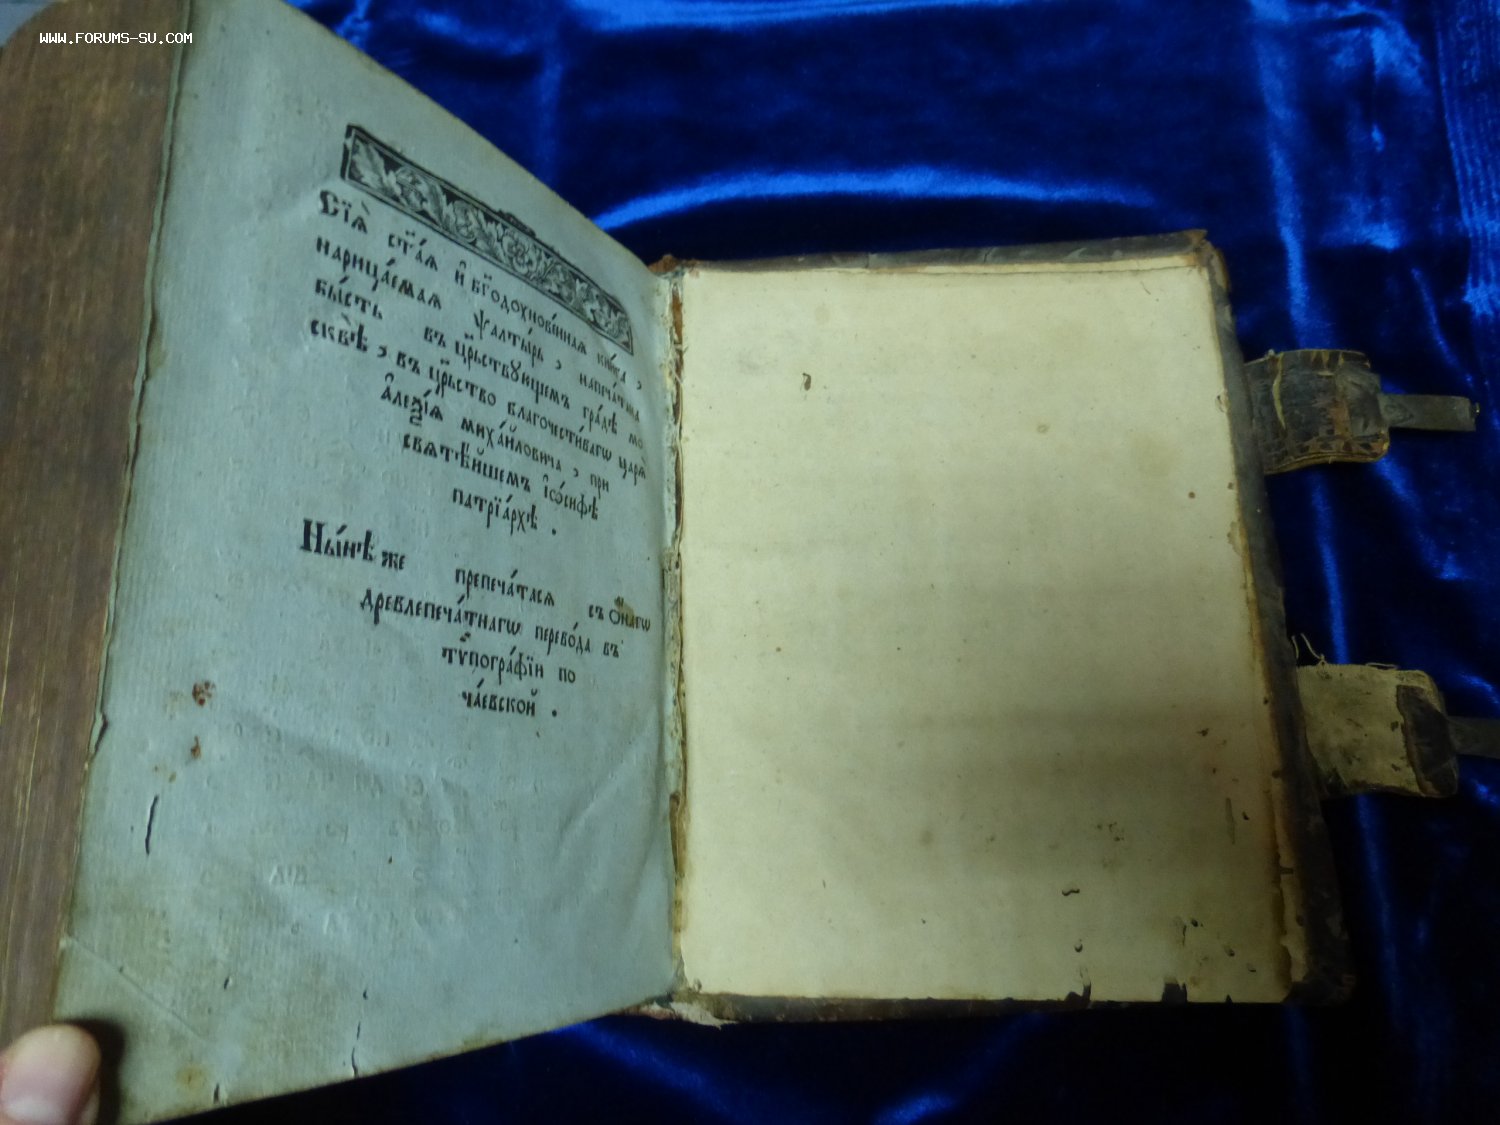 WWW.FORUMS-SU.COM
Сїѧ̀ ст҃а́ѧ и҆ бг҃одохнове́ннаѧ кни́га ,
нарица́емаѧ ѱалты́рь , напеча́тана
бы́сть въ црⷭ҇твꙋющемъ гра́дѣ мо
сквѣ̀ , въ црⷭ҇тво благочести́вагѡ царѧ̀
а҆леѯі́ѧ миха́йловича , при
свѧтѣ́йшемъ і҆ѡ́сифѣ
патрїа́рхѣ .
Ны́нѣ же препеча́тасѧ съ ѻ҆́нагѡ
древлепеча́тнагѡ перево́да въ
тѵ́погра́фїи по
ча́евской .